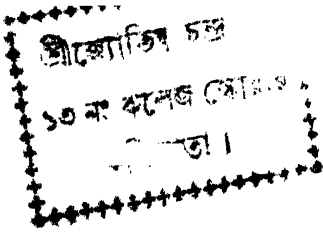 শ্রীজ্যোতিষ চন্দ্র
১৩ নং কলেজ স্কোয়ার,